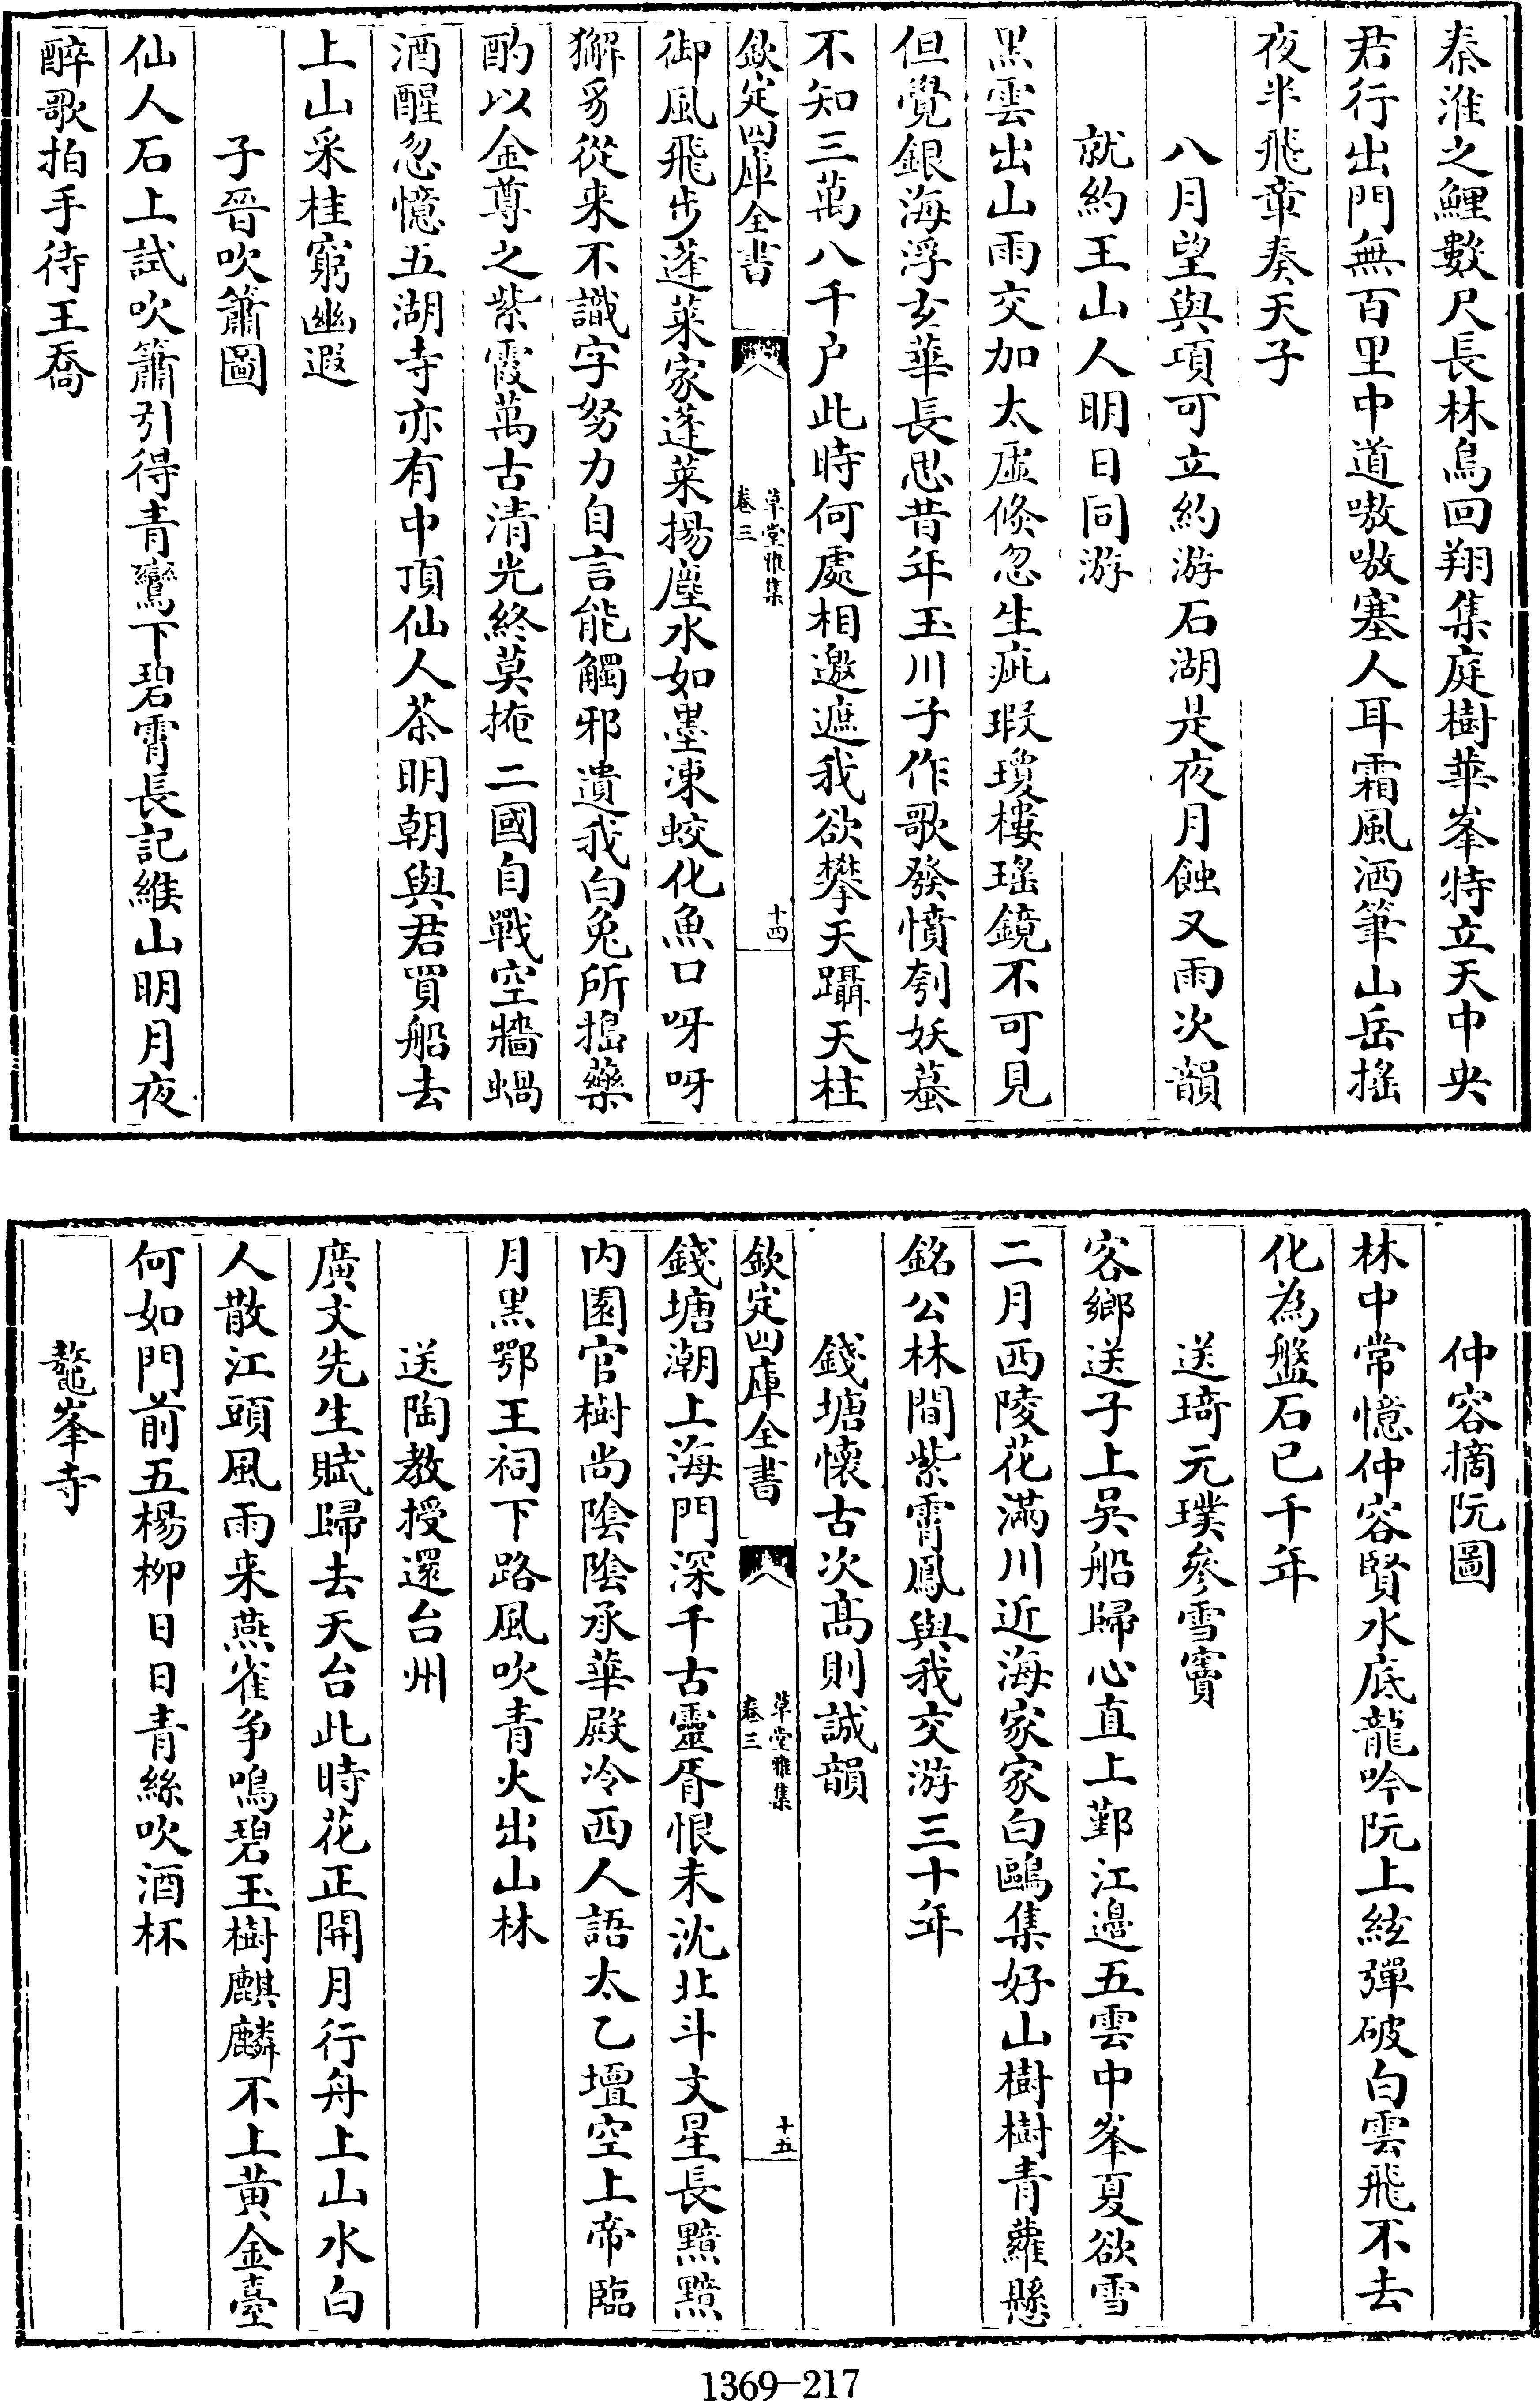 秦淮之鯉數尺長林鳥回翔集庭樹華峯特立天中央
君行出門無百里中道嗷嗷塞人耳霜風洒筆山岳搖
夜半飛章奏天子
八月望與項可立約游石湖是夜月蝕又雨次韻
就約王山人明日同游
黑雲出山雨交加太虛倐忽生疵瑕瓊樓瑤鏡不可見
但覺銀海浮玄華長思昔年玉川子作歌發憤刳妖蟇
不知三萬八千户此時何處相邀遮我欲攀天躡天柱
欽定四庫全書
草堂雅集
卷三
十四
御風飛步蓬萊家蓬萊揚塵水如墨凍蛟化魚口呀呀
獬豸從来不識字努力自言能觸邪遺我白兔所搗藥
酌以金尊之紫霞萬古清光終莫掩二國自戰空牆蝸
酒醒忽憶五湖寺亦有中頂仙人茶明朝與君買船去
上山采桂窮幽遐
子晉吹簫圖
仙人石上試吹簫引得青鸞下碧霄長記維山明月夜
醉歌拍手待王喬
仲容摘阮圖
林中常憶仲容賢水底龍吟阮上絃彈破白雲飛不去
化為盤石已千年
送琦元璞參雪竇
客鄉送子上吳船歸心直上鄞江邊五雲中峯夏欲雪
二月西陵花滿川近海家家白鷗集好山樹樹青蘿懸
銘公林間紫霄鳳與我交游三十年
錢塘懷古次髙則誠韻
欽定四庫全書
草堂雅集
卷三
十五
錢塘潮上海門深千古靈胥恨未沈北斗文星長黯黯
内園官樹尚陰陰承華殿冷西人語太乙壇空上帝臨
月黑鄂王祠下路風吹青火出山林
送陶教授還台州
廣文先生賦歸去天台此時花正開月行舟上山水白
人散江頭風雨来燕雀争鳴碧玉樹麒麟不上黄金臺
何如門前五楊柳日日青絲吹酒杯
鼇峯寺
1369-217